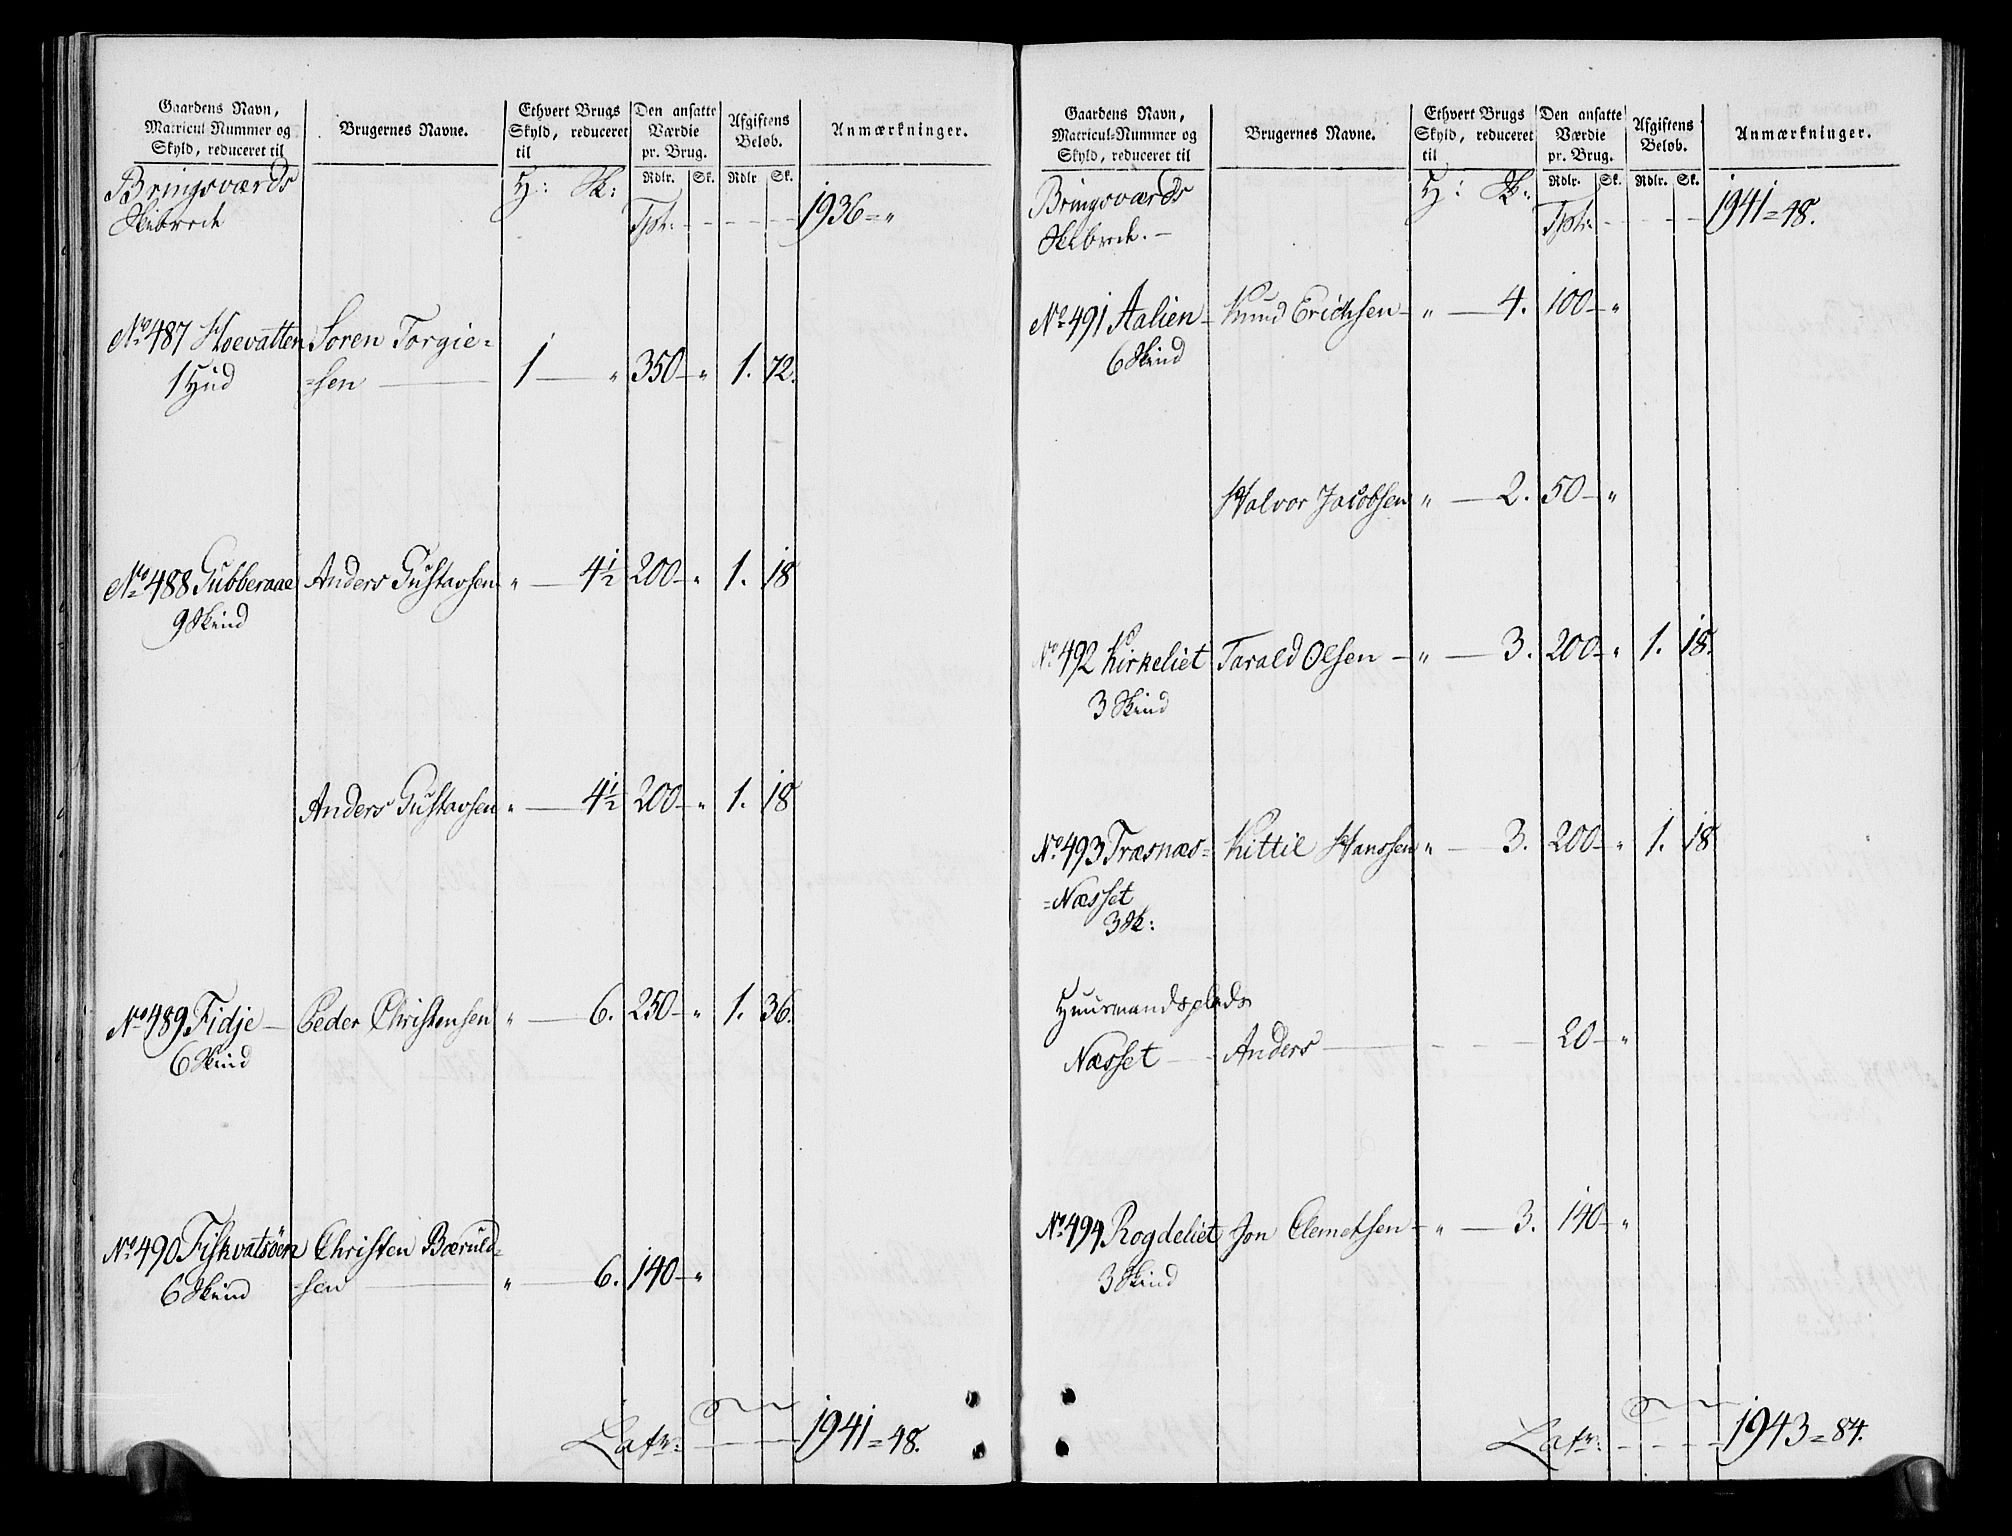 Gaardens Navn,
Matricul-Nummer og
Skyld, reduceret til
Brugernes Navne.
Ethvert Brugs
Skyld, reduceret
til
Den ansatte
Værdie
pr. Brug.
Afgiftens
Beløb.
Anmærkninger.
Rdlr. Sk. Rdlr Sk.
Bringsværds H: Sk:
Skibrede Tpt: 1936 = "
No 487 Hoevatten Søren Torgie=
1 Hud =sen 1 " 350 " 1. 72.
No 488 Gubberaae Anders Gustavsen " 4½ 200 " 1. 18
9 Skind
Anders Gustavsen " 4½ 200 " 1. 18
No 489 Fidje Peder Christensen " 6. 250 " 1. 36.
6 Skind
No 490 Fiskvatsöen Christen Bæruld=
6 Skind =sen " 6. 140 "
Latr: 1941 = 48.
Gaardens Navn,
Matricul-Nummer og
Skyld, reduceret til
Brugernes Navne.
Ethvert Brugs
Skyld, reduceret
til
Den ansatte
Værdie
pr. Brug.
Afgiftens
Beløb.
Anmærkninger.
Rdlr. Sk. Rdlr. Sk.
Bringsværds H: Sk:
Skibrede. Tpt: 1941 = 48.
No 491 Aalien Knud Erichsen " 4. 100 "
6 Skind
Halvor Jacobsen " 2. 50 "
No 492 Kirkeliet Tarald Olsen " 3. 200 " 1. 18.
3 Skind
No 493 Træsnæs= Kittil Hanssen " 3. 200 " 1. 18
=Næsset
3 Sk:
Huusmandsplads
Næsset Anders 20 "
No 494 Rogdeliet Jon Clemetsen " 3. 140 "
3 Skind
Latr: 1943 = 84.